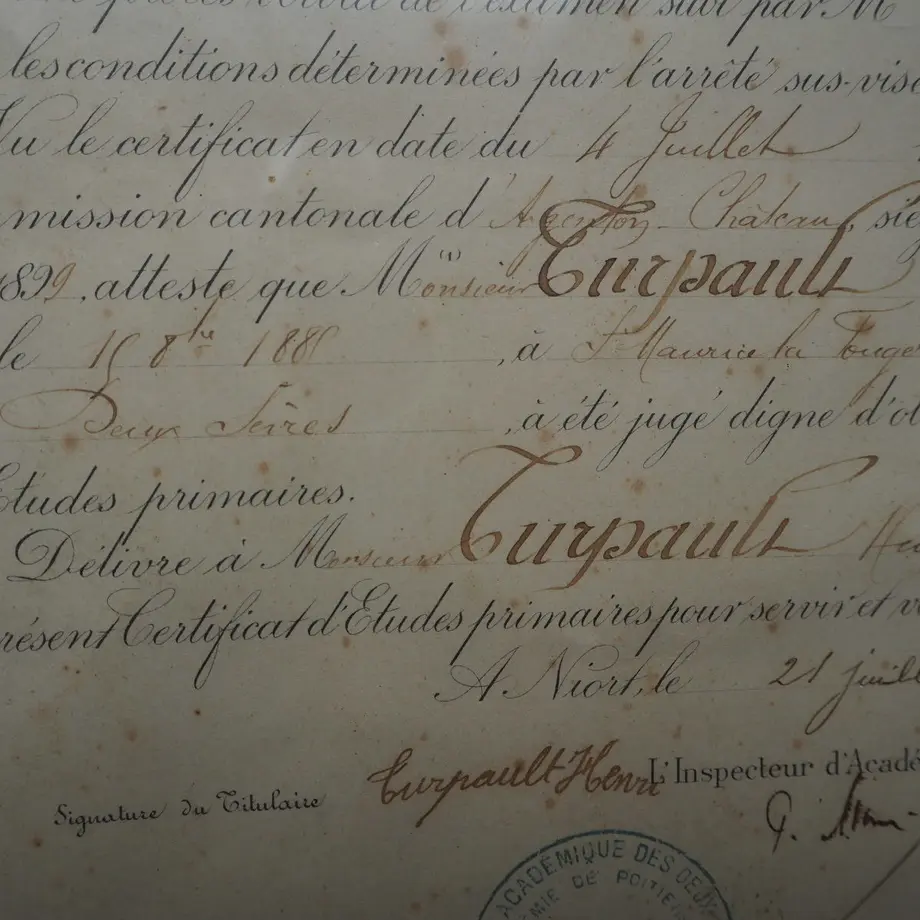 de l'examen suivi par M
les conditions déterminées par l'arrêté sus-visé
Vu le certificat en date du 4 Juillet
mission cantonale d'Argenton-Château, sié
1899, atteste que M(1)onsieur Turpault
le 15 8bre 1885, à St Maurice la Fouge
Deux Sèvres, à été jugé digne d'ob
Etudes primaires.
Délivré à Monsieur Turpault
résent Certificat d'Etudes primaires pour servir et v
A Niort, le 21 juill
L'Inspecteur d'Acadé
Signature du Titulaire Turpault Henri
G.
ACADÉMIQUE DES DEUX
MIE DE POITIE